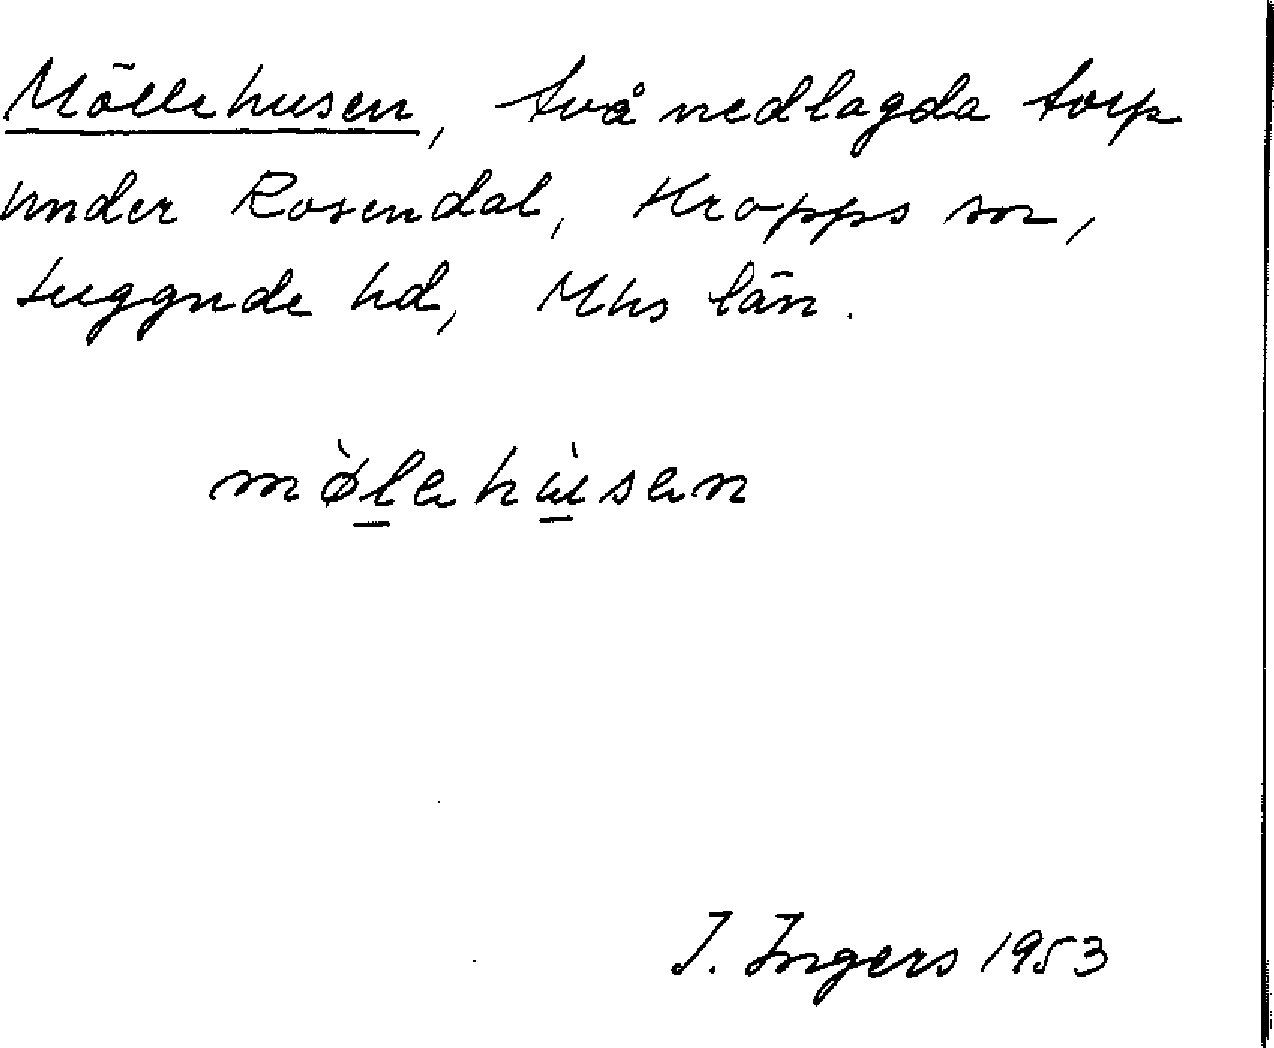 Möllehusen, två nedlagda torp
under Rosendal, Kropps sn,
Luggude hd, Mhs län.
mø̀l̲ahù̲san
I. Ingers 1953